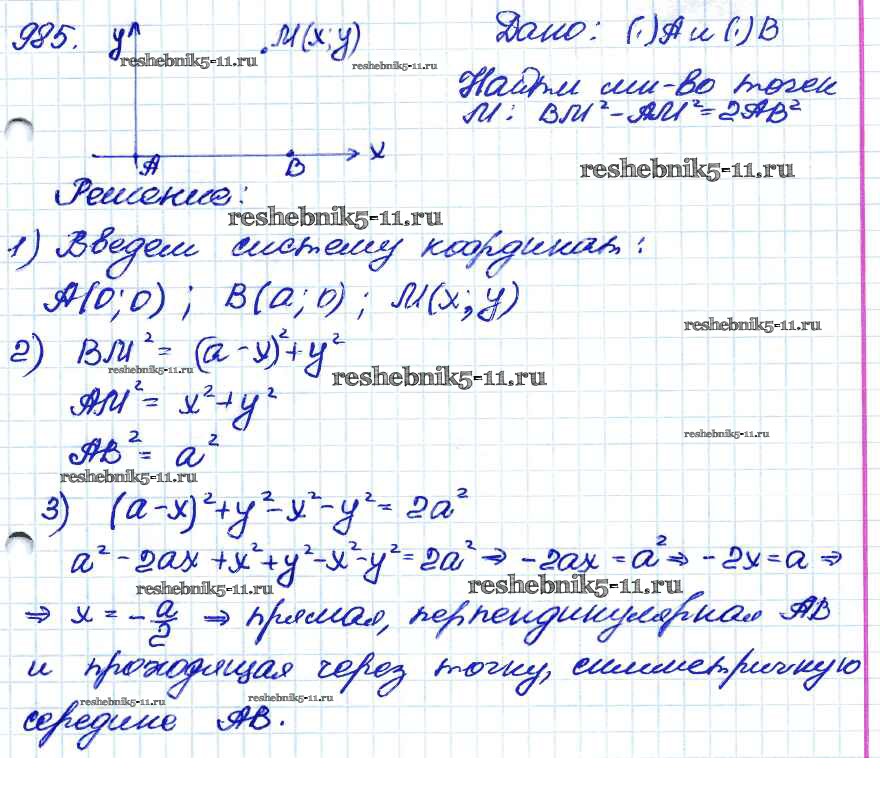 985. y M(x; y) Дано: (·)A и (·)B
reshebnik5-11.ru
reshebnik5-11.ru
Найти мн-во точек
M: BM² - AM² = 2AB²
A B x
reshebnik5-11.ru
Решение:
reshebnik5-11.ru
1) Введем систему координат:
A(0; 0) ; B(a; 0) ; M(x; y)
reshebnik5-11.ru
2) BM² = (a - x)² + y²
reshebnik5-11.ru
reshebnik5-11.ru
AM² = x² + y²
reshebnik5-11.ru
AB² = a²
reshebnik5-11.ru
3) (a - x)² + y² - x² - y² = 2a²
a² - 2ax + x² + y² - x² - y² = 2a² ⇒ -2ax = a² ⇒ -2x = a ⇒
reshebnik5-11.ru
reshebnik5-11.ru
⇒ x = -a/2 ⇒ прямая, перпендикулярная AB
и проходящая через точку, симметричную
reshebnik5-11.ru
reshebnik5-11.ru
середине AB.